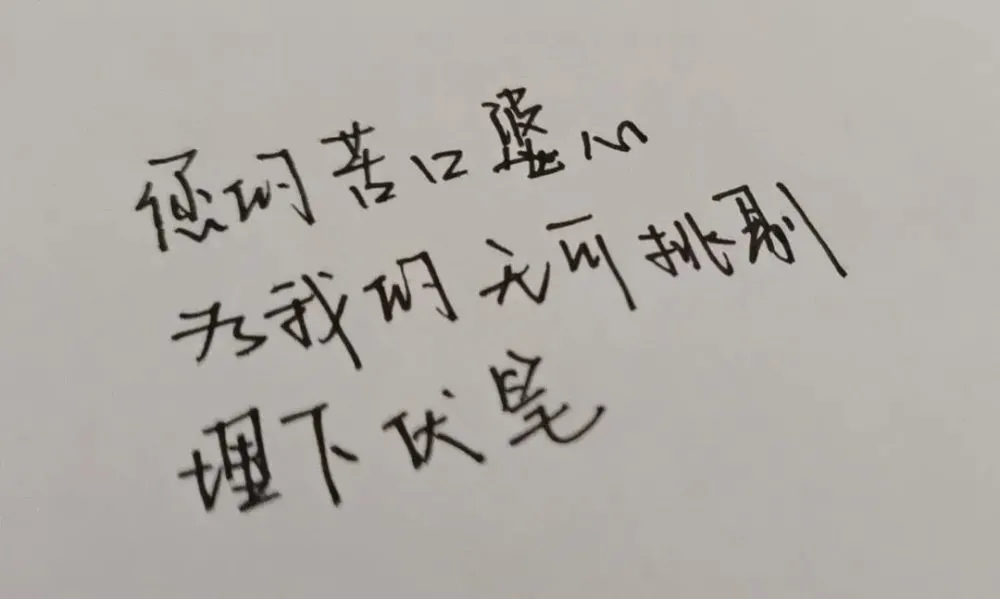 您的苦口婆心
为我的无可挑剔
埋下伏笔